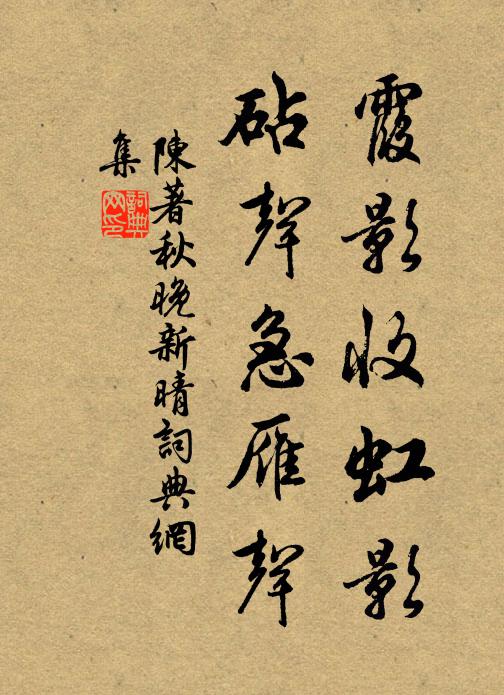 霞影收虹影
砧聲急雁聲
陳著秋晚新晴詞典網
集
詞典
网印